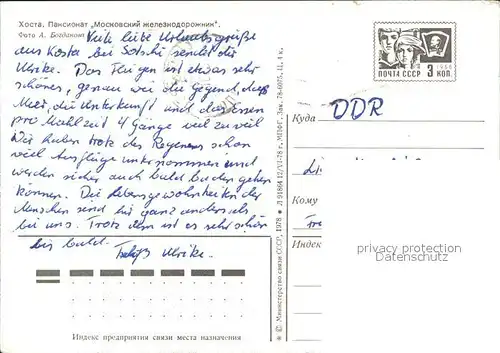 Хоста. Пансионат „Московский железнодорожник".
Фото А. Богданова
Viele liebe Urlaubsgrüße
aus Kosta bei Sotschi sendet dir
Ulrike. Das Fliegen ist etwas sehr
schönes, genau wie die Gegend, das
Meer, die Unterkunft und das Essen
pro Mahlzeit 4 Gänge viel zu viel
Wir haben trotz des Regens schon
viel Ausflüge unternommen und
werden sicher auch bald baden gehen
können. Die Lebensgewohnheiten der
Menschen sind hier ganz anders als
bei uns. Trotzdem ist es sehr schön
bis bald. Ulrike.
Индекс предприятия связи места назначения
© Министерство связи СССР, 1978
ПОЧТА СССР 3 КОП.
Куда DDR
Кому
Индекс
privacy protection